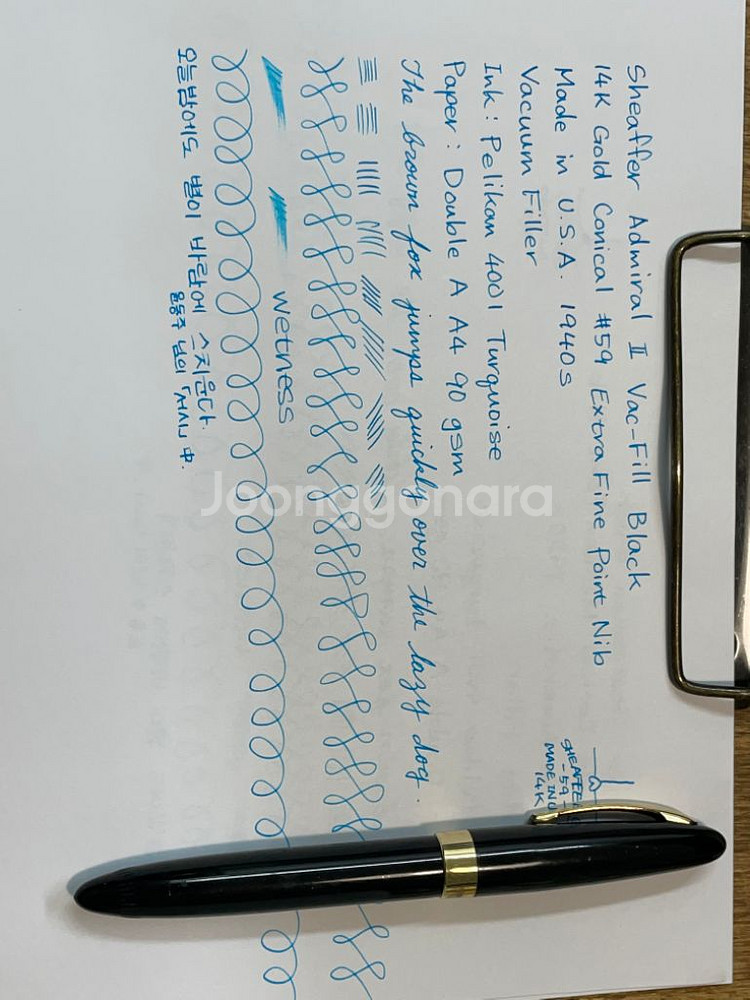 Sheaffer Admiral II Vac-Fill Black
14K Gold Conical #59 Extra Fine Point Nib
Made in U.S.A. 1940s
Vacuum Filler
Ink: Pelikan 4001 Turquoise
Paper: Double A A4 90 gsm
The brown fox jumps quickly over the lazy dog.
wetness
오늘밤에도 별이 바람에 스치운다.
윤동주 님의 「서시」 中.
SHEAFFER
-59-
MADE IN U
14K
Joonggonara